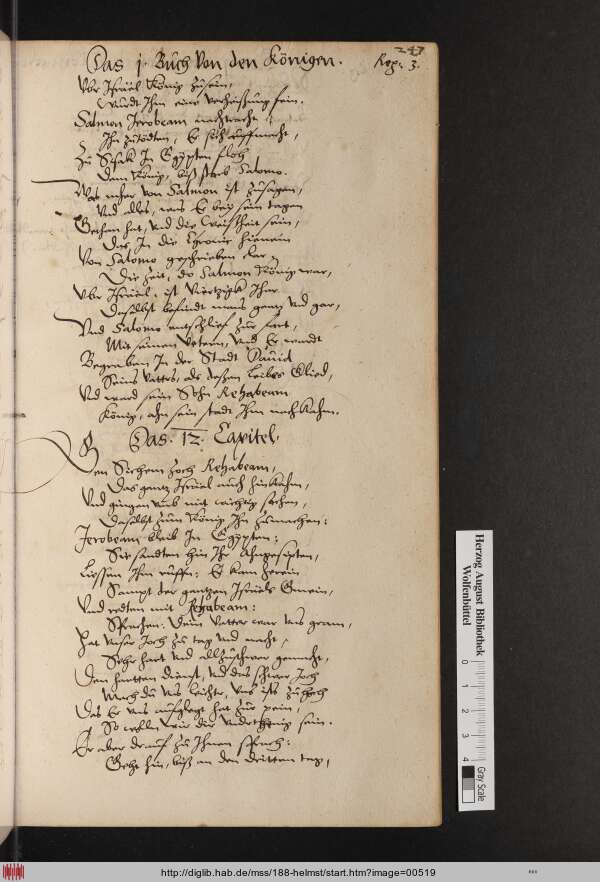 247
Das 1. Buch Von den Königen. Reg: 3.
Vbr Israel König zusein,
Wurdt Ihm eine verheißung fein.
Salmon Jerobeam nachtracht,
Ihn zutödten, Er sich auffmacht,
Zu Sisak In Egypten floh
Dem König, biß starb Salomo.
Was mher von Salmon ist zusagen,
Vnd alles, was Er bey sein tagen
Gethan hat, vnd die Weißheit sein,
Das In die Chronic hienein
Von Salomo geschrieben klar,
Die Zeit, do Salmon König war,
Vbr Israel, ist Viertzigk Jhar
Daselbst befindt mans gantz vnd gar,
Vnd Salomo entschlieff zur fart,
Mit seinen Vetern, vnd Er wardt
Begraben In der Stadt Dauid
Seins Vatters, als dessen leibes Glied,
Vnd ward sein Sohn Rehabeam
König, ahn sein stadt Ihm nach kahm.
Das. 12. Capitel.
Gen Sichem zoch Rehabeam,
Das gantz Israel auch hinkahm,
Vnd gingen vmb mit wichtig sachen,
Daselbst zum König Ihn zumachen:
Jerobeam bleib In Egypten:
Sie sandten hin Ihr
Liessen Ihm ruffn: Er kam herein
Sampt der gantzen Israels Gmein,
Vnd redten mit Rehabeam:
Sprachen: Dein Vatter war vns gram,
Hat vnser Joch zu tag vnd nacht,
Sehr hart vnd allzuschwer gemacht,
Den hartten dienst, vnd das schwer Joch
Mach du vns leichte, vns ists zuhoch
Das Er vns aufgelegt hat zur pein,
So wolln wir dir vnderthenig sein.
Er aber drauff zu Ihnen sprach:
Geht hin, biß an den dritten tag,
Herzog August Bibliothek
Wolfenbüttel
0 1 2 3 4
Gray Scale
http://diglib.hab.de/mss/188-helmst/start.htm?image=00519